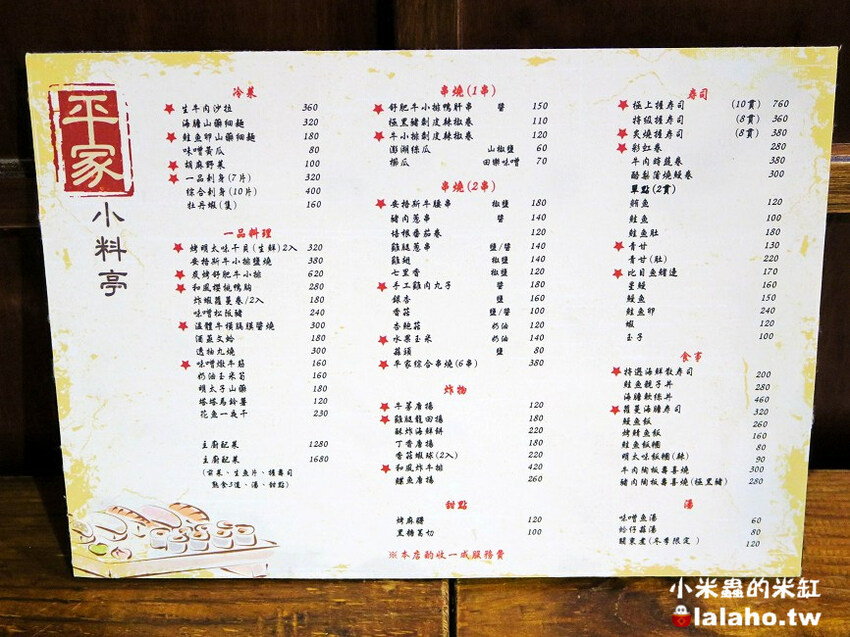 平家
小料亭
冷菜
生牛肉沙拉 360
海膽山藥細麵 320
鮭魚卵山藥細麵 180
味噌黃瓜 80
胡麻野菜 100
一品刺身(7片) 320
綜合刺身(10片) 400
牡丹蝦(隻) 160
一品料理
烤明太味干貝(生鮮)2入 320
安格斯牛小排鹽燒 380
炭烤舒肥牛小排 620
和風櫻桃鴨胸 280
炸蝦蘿蔓卷/2入 180
味噌松阪豬 240
溫體牛橫膈膜醬燒 300
酒蒸文蛤 180
透抽丸燒 300
味噌燉牛筋 160
奶油玉米筍 160
明太子山藥 180
塔塔馬鈴薯 120
花魚一夜干 230
主廚配菜 1280
主廚配菜 1680
(前菜、生魚片、握壽司
熟食3道、湯、甜點)
串燒(1串)
舒肥牛小排鴨肝串 醬 150
極黑豬剝皮辣椒卷 110
牛小排剝皮辣椒卷 120
澎湖絲瓜 山椒鹽 60
櫛瓜 田樂味噌 70
串燒(2串)
安格斯牛腰串 椒鹽 180
豬肉蔥串 醬 140
培根番茄卷 120
雞腿蔥串 鹽/醬 140
雞翅 椒鹽 120
七里香 椒鹽 120
手工雞肉丸子 醬 180
銀杏 鹽 160
香菇 鹽/醬 100
杏鮑菇 奶油 120
水果玉米 奶油 140
蒜頭 鹽 80
平家綜合串燒(6串) 380
炸物
牛蒡唐揚 120
雞腿龍田揚 180
酥炸海鮮餅 220
丁香唐揚 180
香菇蝦球(2入) 220
和風炸牛排 420
鰈魚唐揚 260
甜點
烤麻糬 120
黑糖葛切 100
※本店酌收一成服務費
壽司
極上握壽司 (10貫) 760
特級握壽司 (8貫) 360
炙燒握壽司 (8貫) 380
彩虹卷 280
牛肉時蔬卷 380
酪梨蒲燒鰻卷 300
單點(2貫)
鮪魚 120
鮭魚 100
鮭魚肚 180
青甘 130
青甘(肚) 220
比目魚鰭邊 170
星鰻 160
鰻魚 150
鮭魚卵 180
蝦 120
玉子 100
食事
特選海鮮散壽司 200
鮭魚親子丼 280
海膽軟絲丼 460
蘿蔓海膽壽司 320
鰻魚飯 260
烤鯖魚飯 160
鮭魚飯糰 80
明太味飯糰(辣) 90
牛肉陶板壽喜燒 300
豬肉陶板壽喜燒(極黑豬) 280
湯
味噌魚湯 60
蛤仔蒜湯 80
關東煮(冬季限定) 120
小米蟲的米缸
lalaho.tw